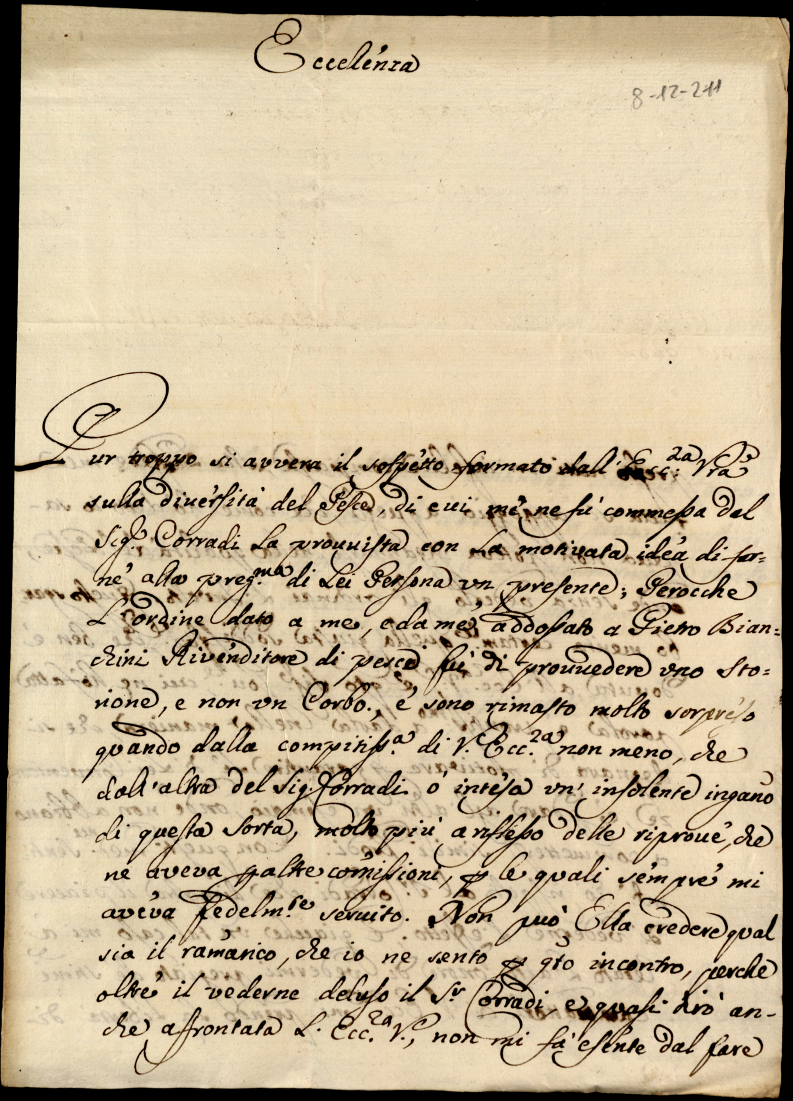 Eccelenza
8-12-211
Pur troppo si avvera il sospetto formato dall' Ecc:za Vra
sulla diversità del Pesce, di cui me ne fù commessa dal
Sigr. Corradi la prouvista con la motivata idea di far-
ne alla preg.ma di Lei Persona un presente; Perocche
L'ordine dato a me, e da me addossato a Pietro Bian=
chini Rivenditore di pesce fù di prouvedere uno Sto=
rione, e non un Corbo., e sono rimasto molto sorpreso
quando dalla compitiss.a di V. Ecc.za non meno, che
dall'altra del Sig. Corradi ò intesa un' insolente ingano
di questa sorta, molto più a riflesso delle riprove, che
ne aveva p altre comissioni, p le quali sempre mi
aveva fedelm.te seruito. Non può Ella credere qual
sia il ramarico, che io ne sento p qto incontro, perche
oltre il vederne deluso il Sr Corradi, e quasi dirò an-
che affrontata L. Ecc.za V., non mi fa esente dal fare